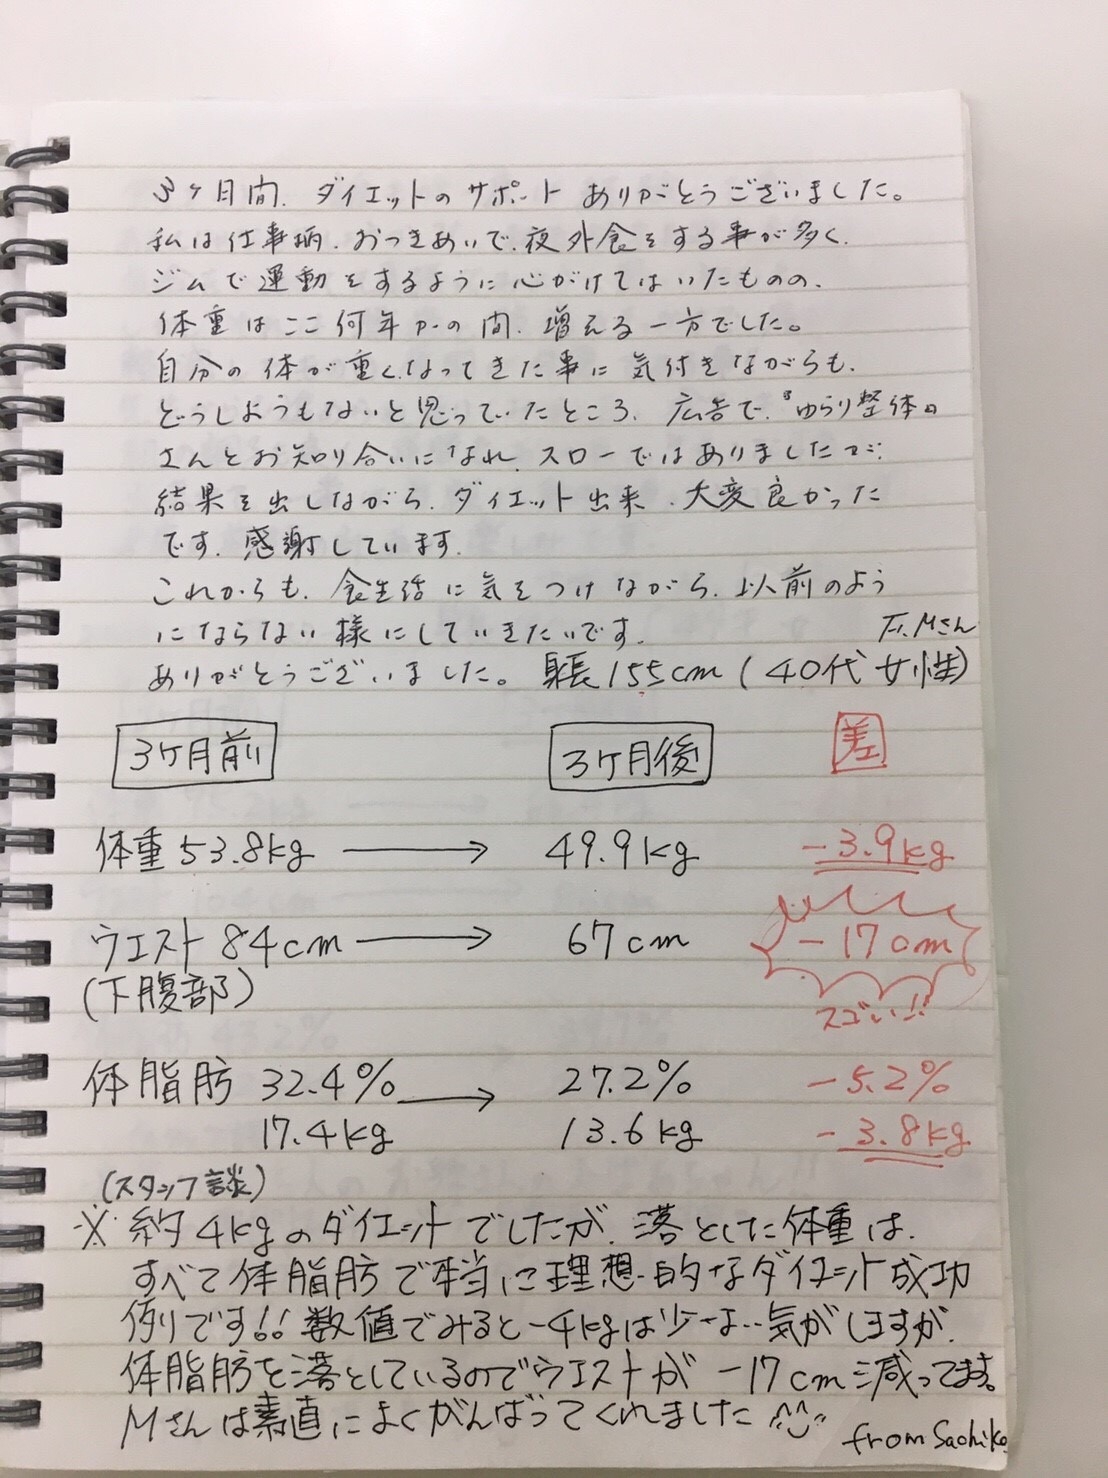 3ヶ月間、ダイエットのサポート ありがとうございました。
私は仕事柄、おつきあいで、夜外食をする事が多く、
ジムで運動をするように心がけてはいたものの、
体重はここ何年かの間、増える一方でした。
自分の体が重くなってきた事に気付きながらも、
どうしようもないと思っていたところ、広告で、『ゆらり整体』
さんとお知り合いになれ、スローではありましたが
結果を出しながら、ダイエット出来、大変良かった
です。感謝しています。
これからも、食生活に気をつけながら、以前のよう
にならない様にしていきたいです。
Mさん
ありがとうございました。 身長155cm (40代女性)
3ヶ月前 3ヶ月後 差
体重 53.8kg → 49.9kg -3.9kg
ウエスト 84cm → 67cm -17cm
(下腹部) スゴい!!
体脂肪 32.4% → 27.2% -5.2%
17.4kg 13.6kg -3.8kg
(スタッフ談)
※ 約4kgのダイエットでしたが、落とした体重は、
すべて体脂肪で本当に理想的なダイエット成功
例です!! 数値でみると-4kgは少な…気がしますが、
体脂肪を落としているのでウエストが -17cm減ってます。
Mさんは素直によくがんばってくれました ^^
from Sachiko